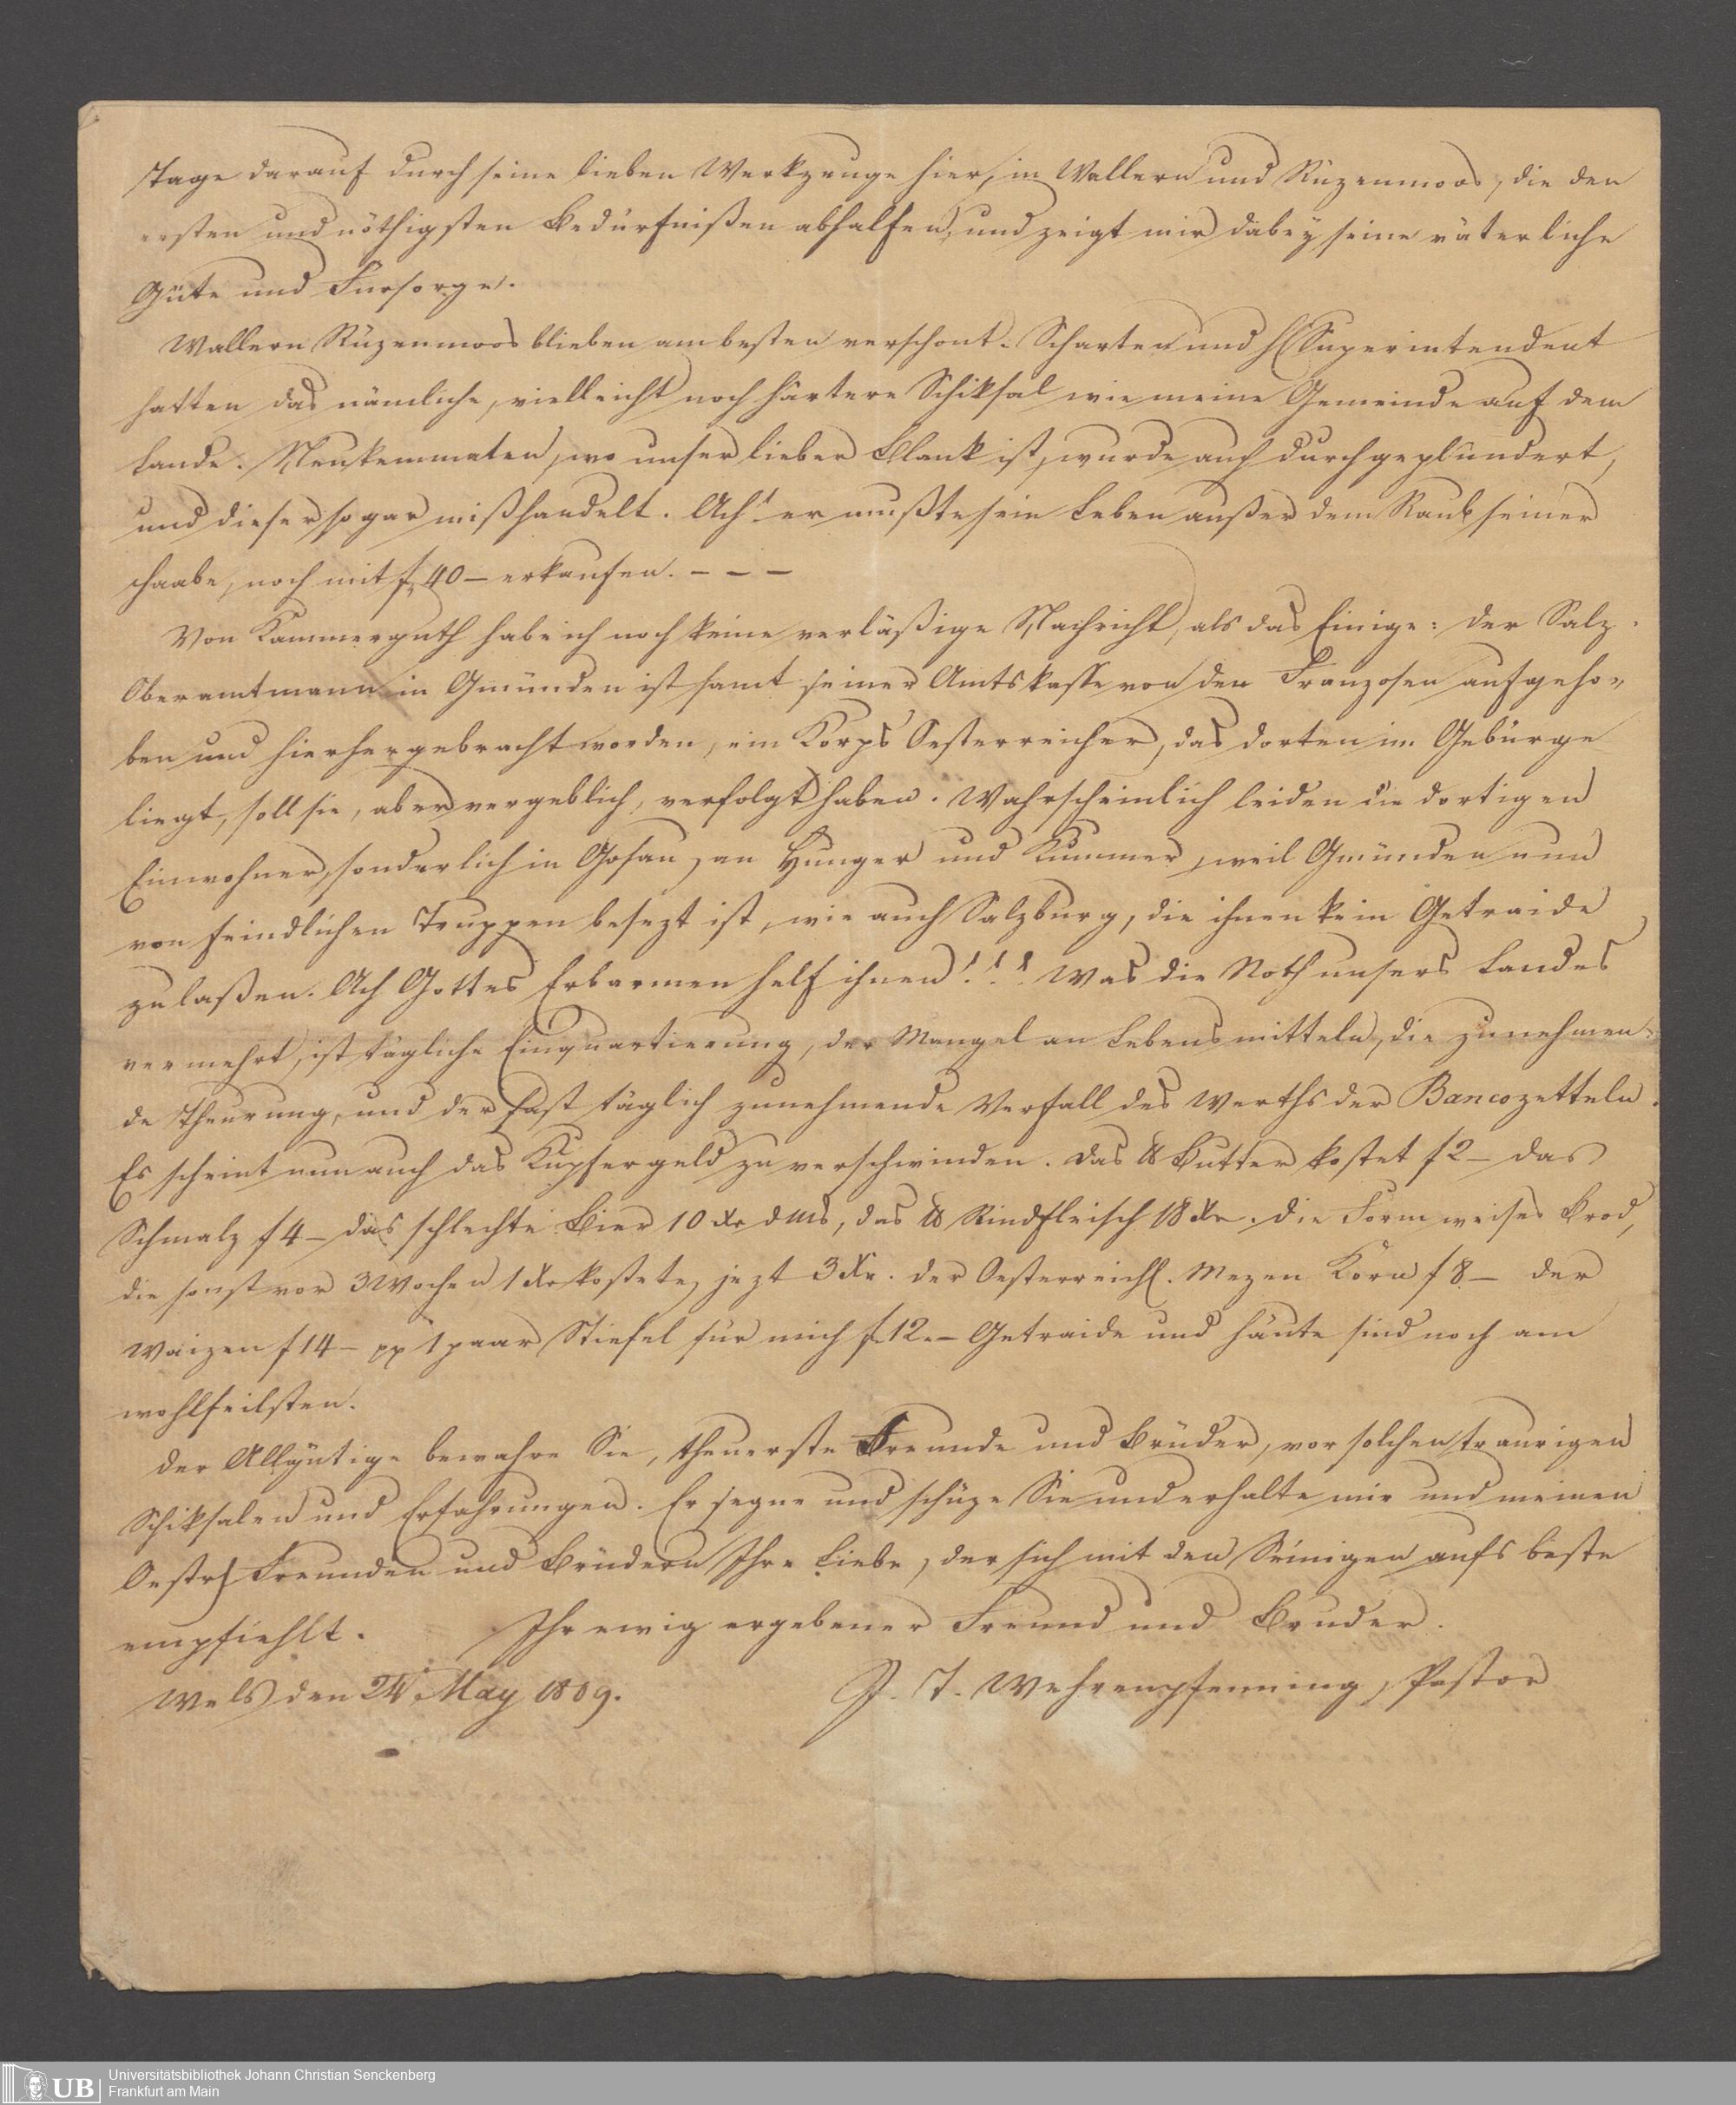 Tage darauf durch seine lieben Werkzeuge hier, in Wallern und Rüzenmoos, die den
ersten und nöthigsten Bedürfnißen abhalfen, und zeigt mir dabey seine väterliche
Güte und Fürsorge.
Wallern Rüzenmoos blieben am besten verschont. Scharten und H Superintendent
hatten das nämliche, vielleicht noch härtere Schiksal wie meine Gemeinde auf dem
Lande. Neukemmaten, wo unser lieber Blank ist, wurde auch durchgeplündert,
und dieser sogar mißhandelt. Ach! er mußte sein Leben außer dem Raub seiner
Haabe, noch mit f 40 – erkaufen. – – –
Von Kammerguth habe ich noch keine verläßige Nachricht, als das Einige: der Salz-
Oberamtmann in Gmünden ist samt seiner Amtskasse von den Franzosen aufgeho-
ben und hierher gebracht worden, ein Korps Oesterreicher, das dorten im Gebürge
liegt, soll sie, aber vergeblich, verfolgt haben. Wahrscheinlich leiden die dortigen
Einwohner, sonderlich in Gosau, an Hunger und Kummer, weil Gmünden nun
von feindlichen Truppen besezt ist, wie auch Salzburg, die ihnen kein Getraide
zulaßen. Ach Gottes Erbarmen helf ihnen!!! Was die Noth unsers Landes
vermehrt, ist tägliche Einquartierung, der Mangel an Lebensmitteln, die zunehmen-
de Theurung, und der fast täglich zunehmende Verfall des Werths der Bancozetteln.
Es scheint nun auch das Kupfergeld zu verschwinden. Das ℔ Butter kostet f 2 – das
Schmalz f 4 – das schlechte Bier 10 Xr d Ms, das ℔ Rindfleisch 18 Xr. Die Form weises Brod,
die sonst vor 3 Wochen 1 Xr kostete, jezt 3 Xr. der Oesterreichl. Mezen Korn f 8 – der
Waizen f 14 – pp 1 paar Stiefel für mich f 12. – Getraide und Häute sind noch am
wohlfeilsten.
Der Allgütige bewahre Sie, theuerste Freunde und Brüder, vor solchen traurigen
Schiksalen und Erfahrungen. Er segne und schüze Sie und erhalte mir und meinen
Oestr. Freunden und Brüdern Ihre Liebe, der sich mit den Seinigen aufs beste
empfiehlt. Ihr ewig ergebener Freund und Bruder.
Wels den 24 May 1809. J. T. Wehrenpfenning, Pastor
UB
Universitätsbibliothek Johann Christian Senckenberg
Frankfurt am Main